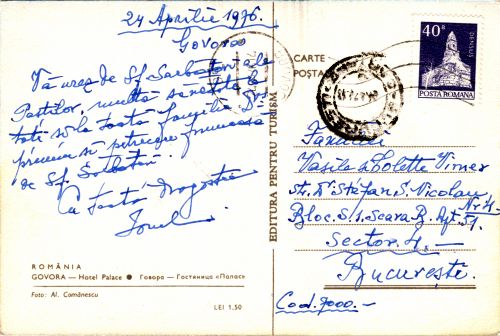 24 Aprilie 1976.
Govora
Vă urez de Sf. Sarbatori ale
Paștilor, multă sănătate la
toți și la toată familia Dvs
și petrecere frumoasă
de Sf. Sărbători.
Cu toată dragostea
Ionel
ROMÂNIA
GOVORA — Hotel Palace ● Говора — Гостиница «Палас»
Foto: Al. Comănescu
LEI 1,50
EDITURA PENTRU TURISM
CARTE
POȘTA
40B
DENSUȘ
POSTA ROMANA
Familiei
Vasile și Colette Vimer
str. Dr Ștefan S. Nicolau
Nr 4.
Bloc. S.1. Scara B. Apt 51.
Sector 4. —
București.
Cod. 7000. —